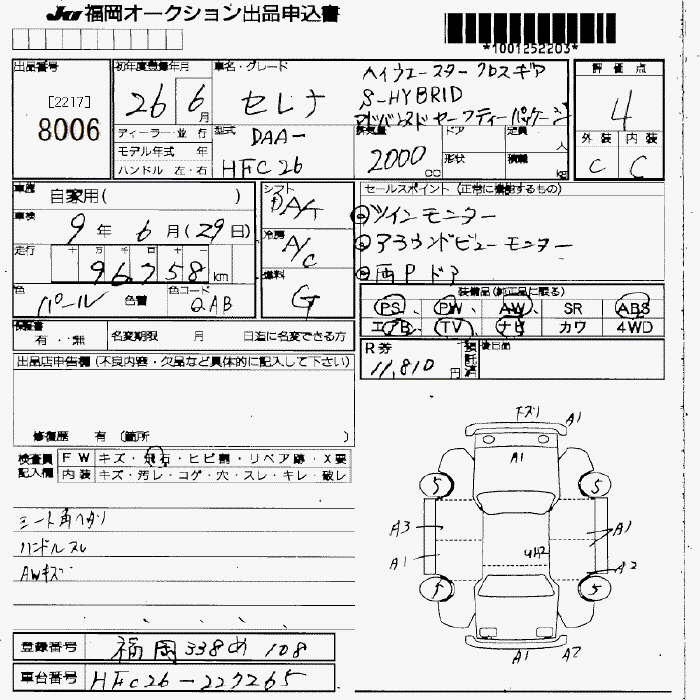 JU 福岡オークション出品申込書
*1001252203*
出品番号
[2217]
8006
初年度登録年月
26 6月
車名・グレード
セレナ
ハイウェースター クロスギア
S-HYBRID
アドバンスドセーフティーパッケージ
評価点
4
外装 内装
C C
ディーラー・並行
モデル年式 年
ハンドル 左・右
型式
DAA-
HFC26
排気量
2000 cc
ドア
形状
定員 人
積載 kg
車歴
自家用( )
車検
9年 6月(29日)
走行
十 万 千 百 十
96758km
色
パール
色替
色コード
QAB
シフト
DA/T
冷房
A/C
燃料
G
セールスポイント(正常に機能するもの)
ツインモニター
アラウンドビューモニター
両Pドア
装備品(純正品に限る)
PS、 PW、 AW、 SR ABS
エアB TV ナビ カワ 4WD
保証書
有・無
名変期限 月 日迄に名変できる方
R券
11,810円
後日品
出品店申告欄(不良内容・欠品など具体的に記入して下さい)
修復歴 有(箇所 )
検査員
記入欄
FW キズ・飛石・ヒビ割・リペア跡・X要
内装 キズ・汚レ・コゲ・穴・スレ・キレ・破レ
ハンドルスレ
AWキズ
A1
A1
5 5
A3 A1
A1
U2
A2
5 5
A1 A2
登録番号
福岡 338 め 108
車台番号
HFC26-227265